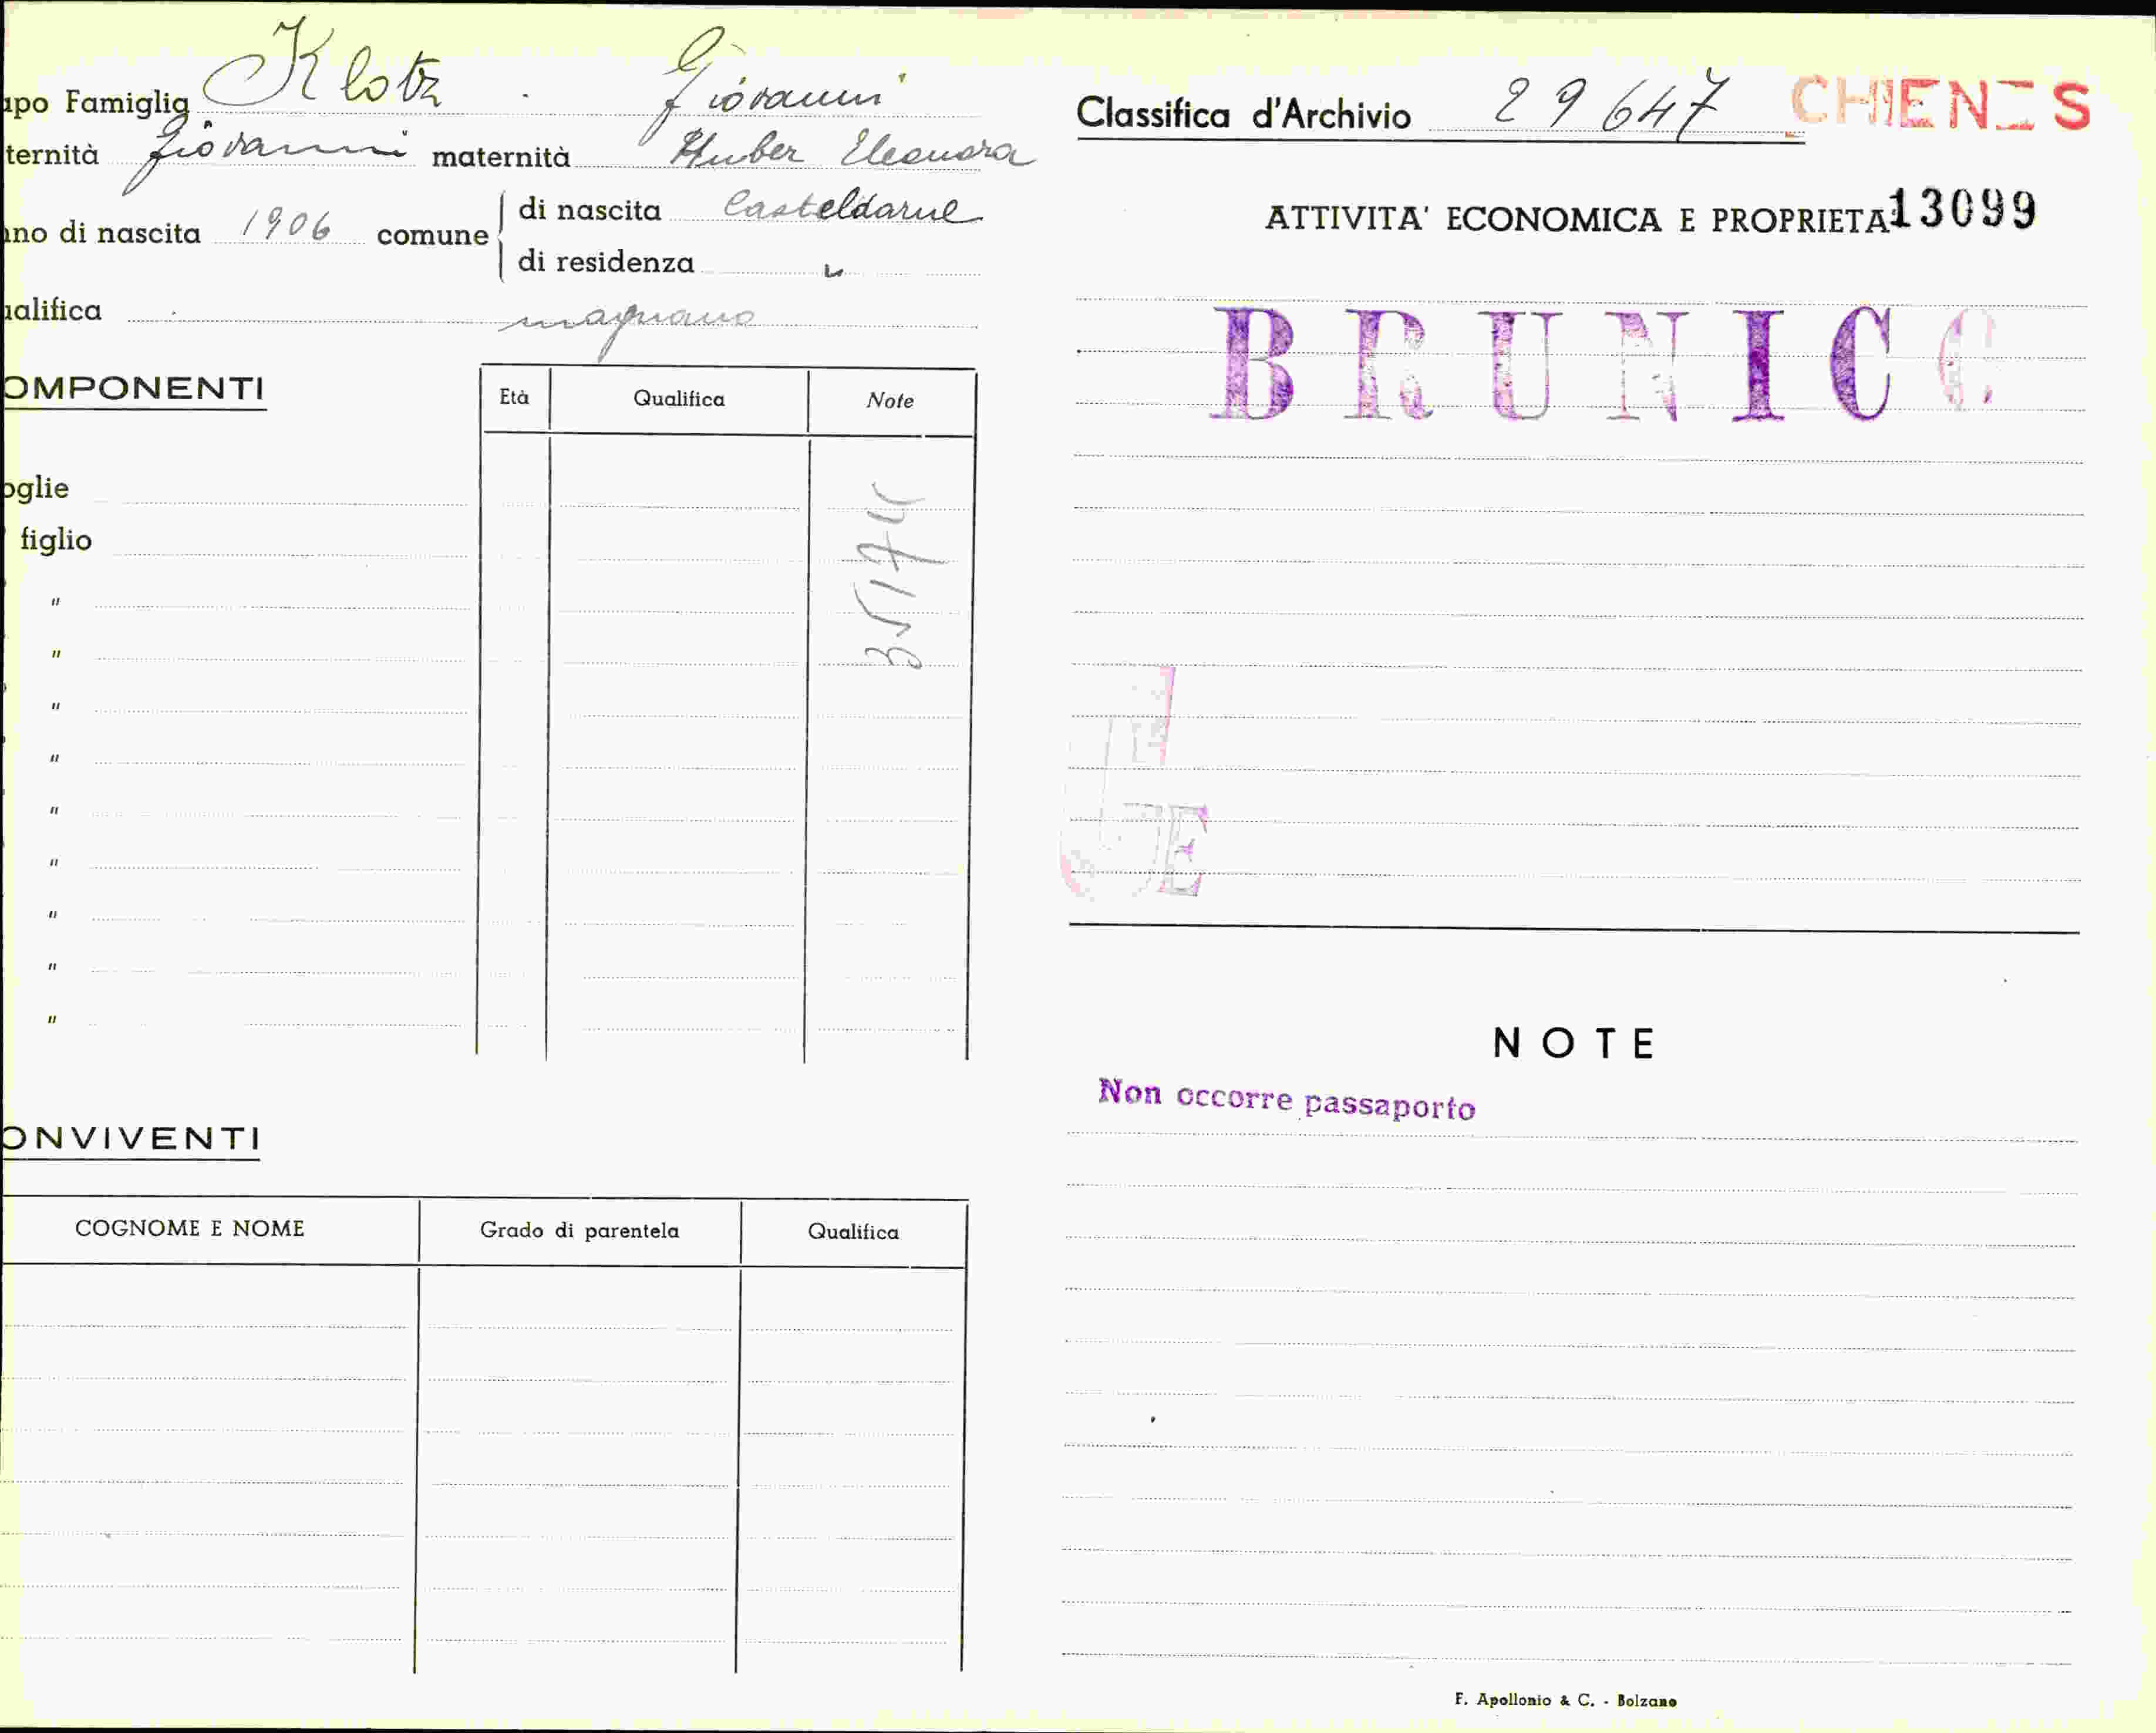 apo Famiglia Klotz Giovanni
ternità Giovanni maternità Huber Eleonora
no di nascita 1906 comune di nascita Casteldarne
di residenza "
ualifica magnano
OMPONENTI
Età Qualifica Note
oglie
figlio
"
"
"
"
"
"
"
"
"
ONVIVENTI
COGNOME E NOME Grado di parentela Qualifica
Classifica d'Archivio 29647 CHIENES
ATTIVITA' ECONOMICA E PROPRIETA' 13099
BRUNICO
NOTE
Non occorre passaporto
F. Apollonio & C. - Bolzano